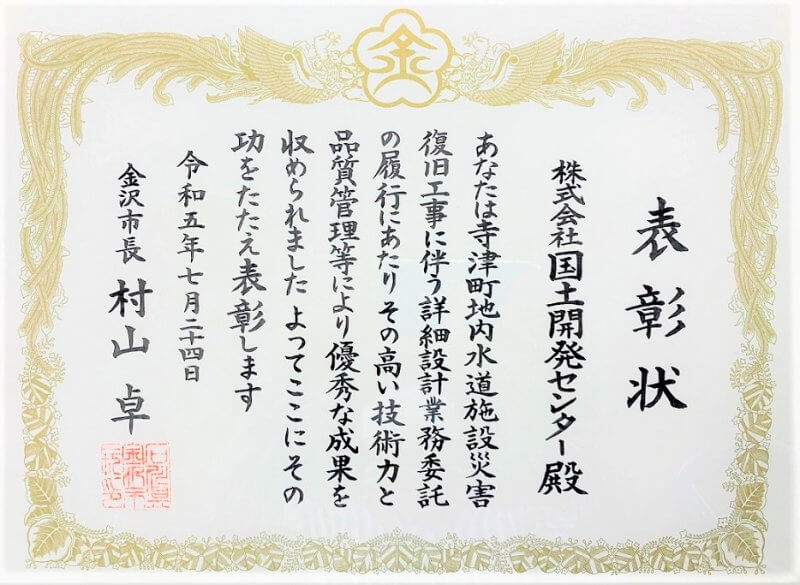 表彰状
株式会社国土開発センター殿
あなたは寺津町地内水道施設災害
復旧工事に伴う詳細設計業務委託
の履行にあたりその高い技術力と
品質管理等により優秀な成果を
収められました よってここにその
功をたたえ表彰します
令和五年七月二十四日
金沢市長 村山 卓